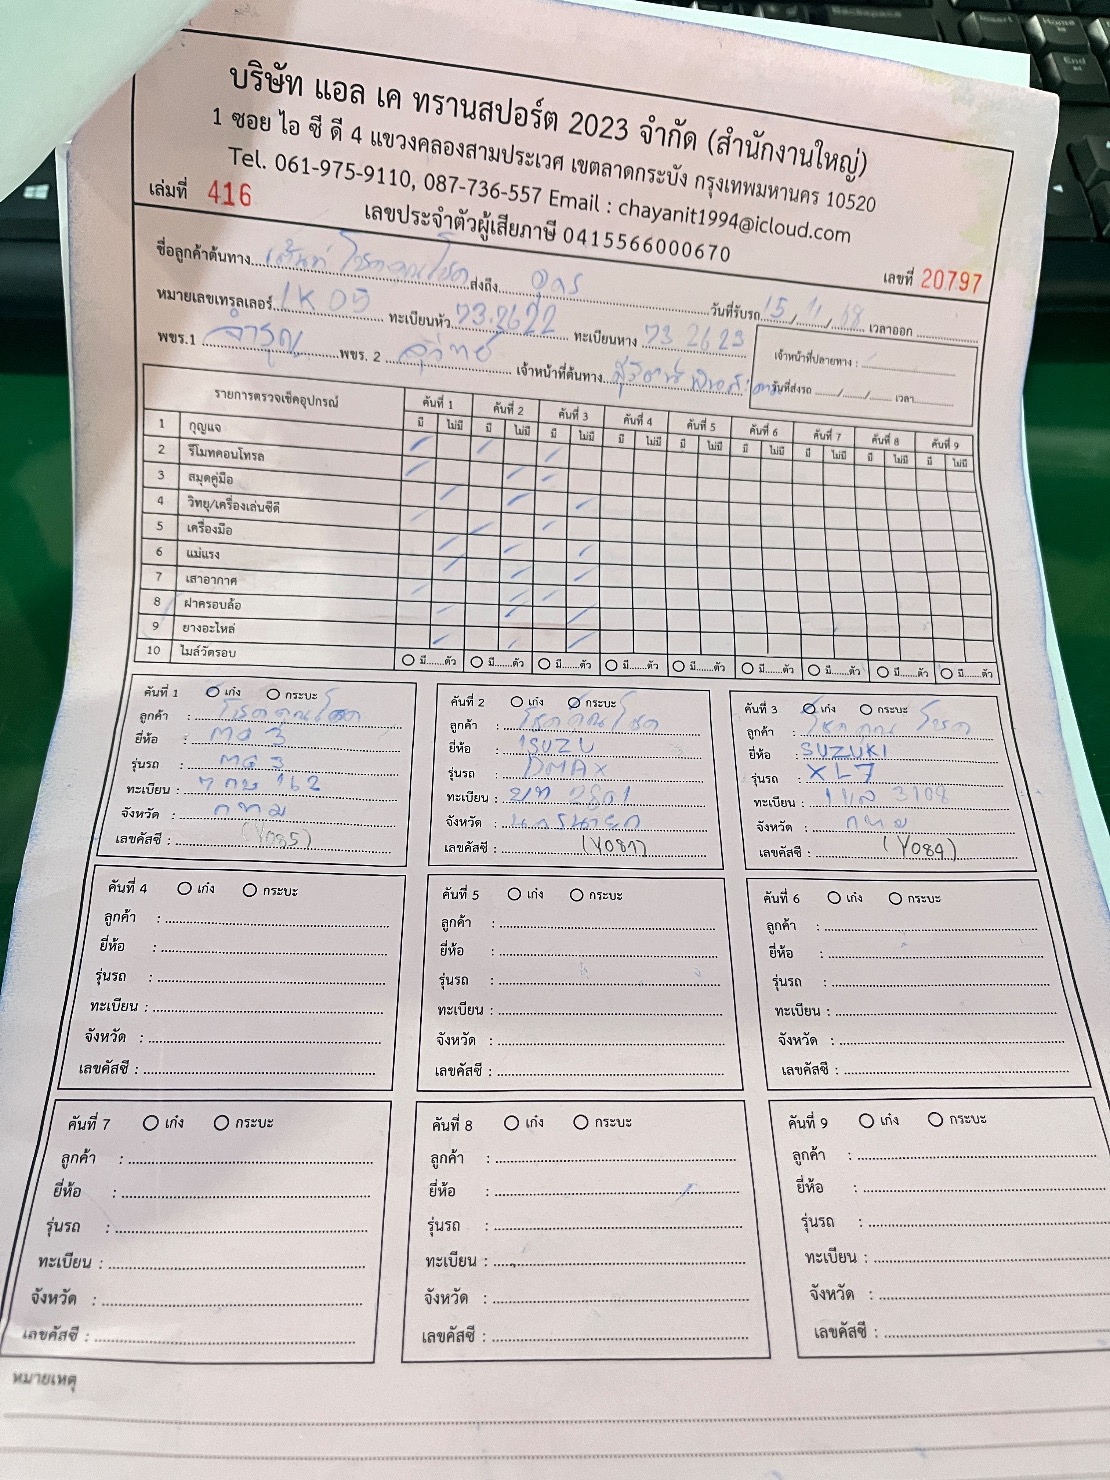 บริษัท แอล เค ทรานสปอร์ต 2023 จำกัด (สำนักงานใหญ่)
1 ซอย ไอ ซี ดี 4 แขวงคลองสามประเวศ เขตลาดกระบัง กรุงเทพมหานคร 10520
Tel. 061-975-9110, 087-736-557 Email : chayanit1994@icloud.com
เล่มที่ 416
เลขประจำตัวผู้เสียภาษี 0415566000670
เลขที่ 20797
ชื่อลูกค้าต้นทาง โชคคูณโชค ส่งถึง อุดร วันที่รับรถ 15/11/68 เวลาออก
หมายเลขเทรลเลอร์ LK 05 ทะเบียนหัว 73.2622 ทะเบียนหาง 73 2623
พขร.1 จำรูญ พขร. 2 สุวิทย์ เจ้าหน้าที่ต้นทาง
เจ้าหน้าที่ปลายทาง :
วันที่ส่งรถ ...../...../..... เวลา
รายการตรวจเช็คอุปกรณ์ คันที่ 1 คันที่ 2 คันที่ 3 คันที่ 4 คันที่ 5 คันที่ 6 คันที่ 7 คันที่ 8 คันที่ 9
มี ไม่มี มี ไม่มี มี ไม่มี มี ไม่มี มี ไม่มี มี ไม่มี มี ไม่มี มี ไม่มี มี ไม่มี
1 กุญแจ
2 รีโมทคอนโทรล
3 สมุดคู่มือ
4 วิทยุ/เครื่องเล่นซีดี
5 เครื่องมือ
6 แม่แรง
7 เสาอากาศ
8 ฝาครอบล้อ
9 ยางอะไหล่
10 ไมล์วัดรอบ มี.......ตัว มี.......ตัว มี.......ตัว มี.......ตัว มี.......ตัว มี.......ตัว มี.......ตัว มี.......ตัว มี.......ตัว
คันที่ 1 เก๋ง กระบะ
ลูกค้า : โชคคูณโชค
ยี่ห้อ : MG 3
รุ่นรถ : MG 3
ทะเบียน : 7 กษ 162
จังหวัด : กทม
เลขคัสซี : (Y085)
คันที่ 2 เก๋ง กระบะ
ลูกค้า : โชคคูณโชค
ยี่ห้อ : ISUZU
รุ่นรถ : DMAX
ทะเบียน : บท 2801
จังหวัด : นครนายก
เลขคัสซี :
คันที่ 3 เก๋ง กระบะ
ลูกค้า : โชคคูณโชค
ยี่ห้อ : SUZUKI
รุ่นรถ : XL7
ทะเบียน : 3108
จังหวัด : กทม
เลขคัสซี : (Y084)
คันที่ 4 เก๋ง กระบะ
ลูกค้า :
ยี่ห้อ :
รุ่นรถ :
ทะเบียน :
จังหวัด :
เลขคัสซี :
คันที่ 5 เก๋ง กระบะ
ลูกค้า :
ยี่ห้อ :
รุ่นรถ :
ทะเบียน :
จังหวัด :
เลขคัสซี :
คันที่ 6 เก๋ง กระบะ
ลูกค้า :
ยี่ห้อ :
รุ่นรถ :
ทะเบียน :
จังหวัด :
เลขคัสซี :
คันที่ 7 เก๋ง กระบะ
ลูกค้า :
ยี่ห้อ :
รุ่นรถ :
ทะเบียน :
จังหวัด :
เลขคัสซี :
คันที่ 8 เก๋ง กระบะ
ลูกค้า :
ยี่ห้อ :
รุ่นรถ :
ทะเบียน :
จังหวัด :
เลขคัสซี :
คันที่ 9 เก๋ง กระบะ
ลูกค้า :
ยี่ห้อ :
รุ่นรถ :
ทะเบียน :
จังหวัด :
เลขคัสซี :
หมายเหตุ